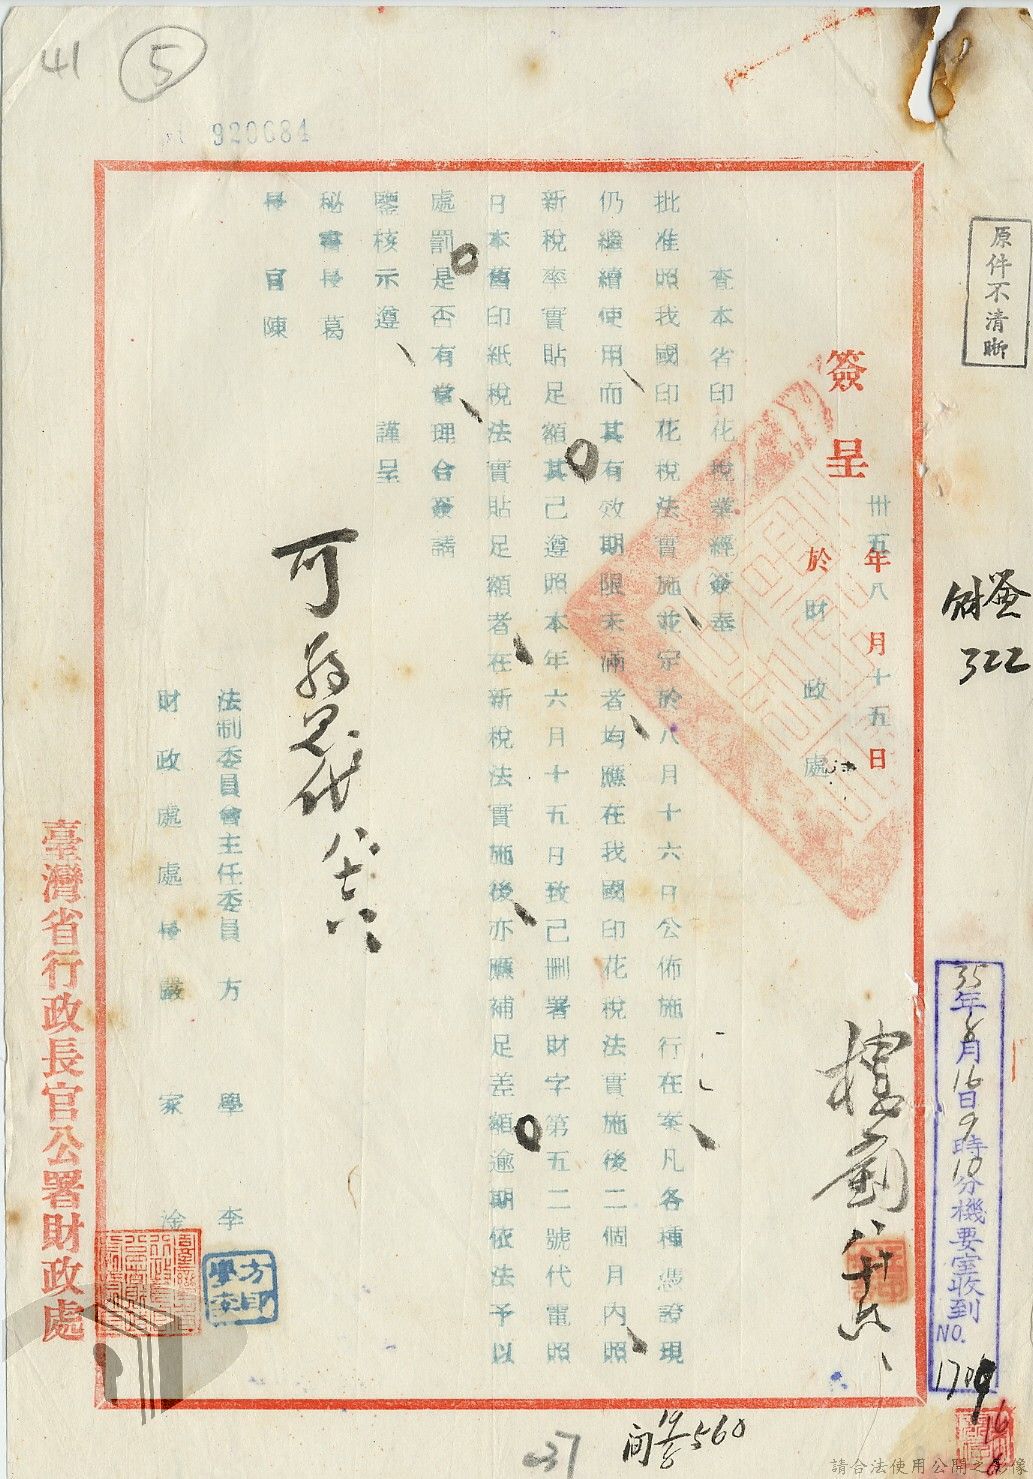 41
5
920684
原件不清晰
簽呈
卅五年八月十五日
於財政處
查本省印花稅業經簽奉
批准照我國印花稅法實施並定於八月十六日公佈施行在案凡各種憑證現
仍繼續使用而其有效期限未滿者均應在我國印花稅法實施後二個月內照
新稅率實貼足額其己遵照本年六月十五日致己刪署財字第五二號代電照
日本舊印紙稅法實貼足額者在新稅法實施後亦應補足差額逾期依法予以
處罰是否有當理合簽請
鑒核示遵 謹呈
秘書長葛
長官陳
法制委員會主任委員方學李
財政處處長嚴家淦
方學李印
可
臺灣省行政長官公署財政處
財簽
322
35年8月16日9時10分機要室收到
NO.
1709
16
8
19/8 560
37
請合法使用公開之影像